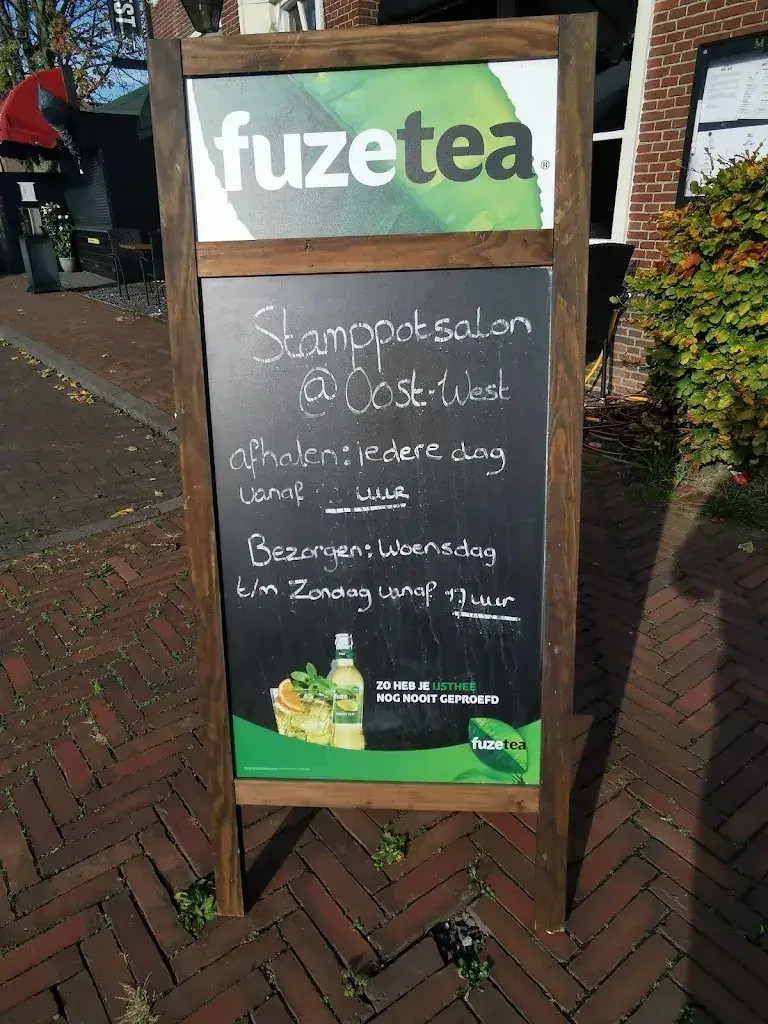 fuzetea®
Stamppotsalon
@ Oost-West
afhalen: iedere dag
vanaf uur
Bezorgen: Woensdag
t/m Zondag vanaf 17 uur
ZO HEB JE IJSTHEE
NOG NOOIT GEPROEFD
fuzetea